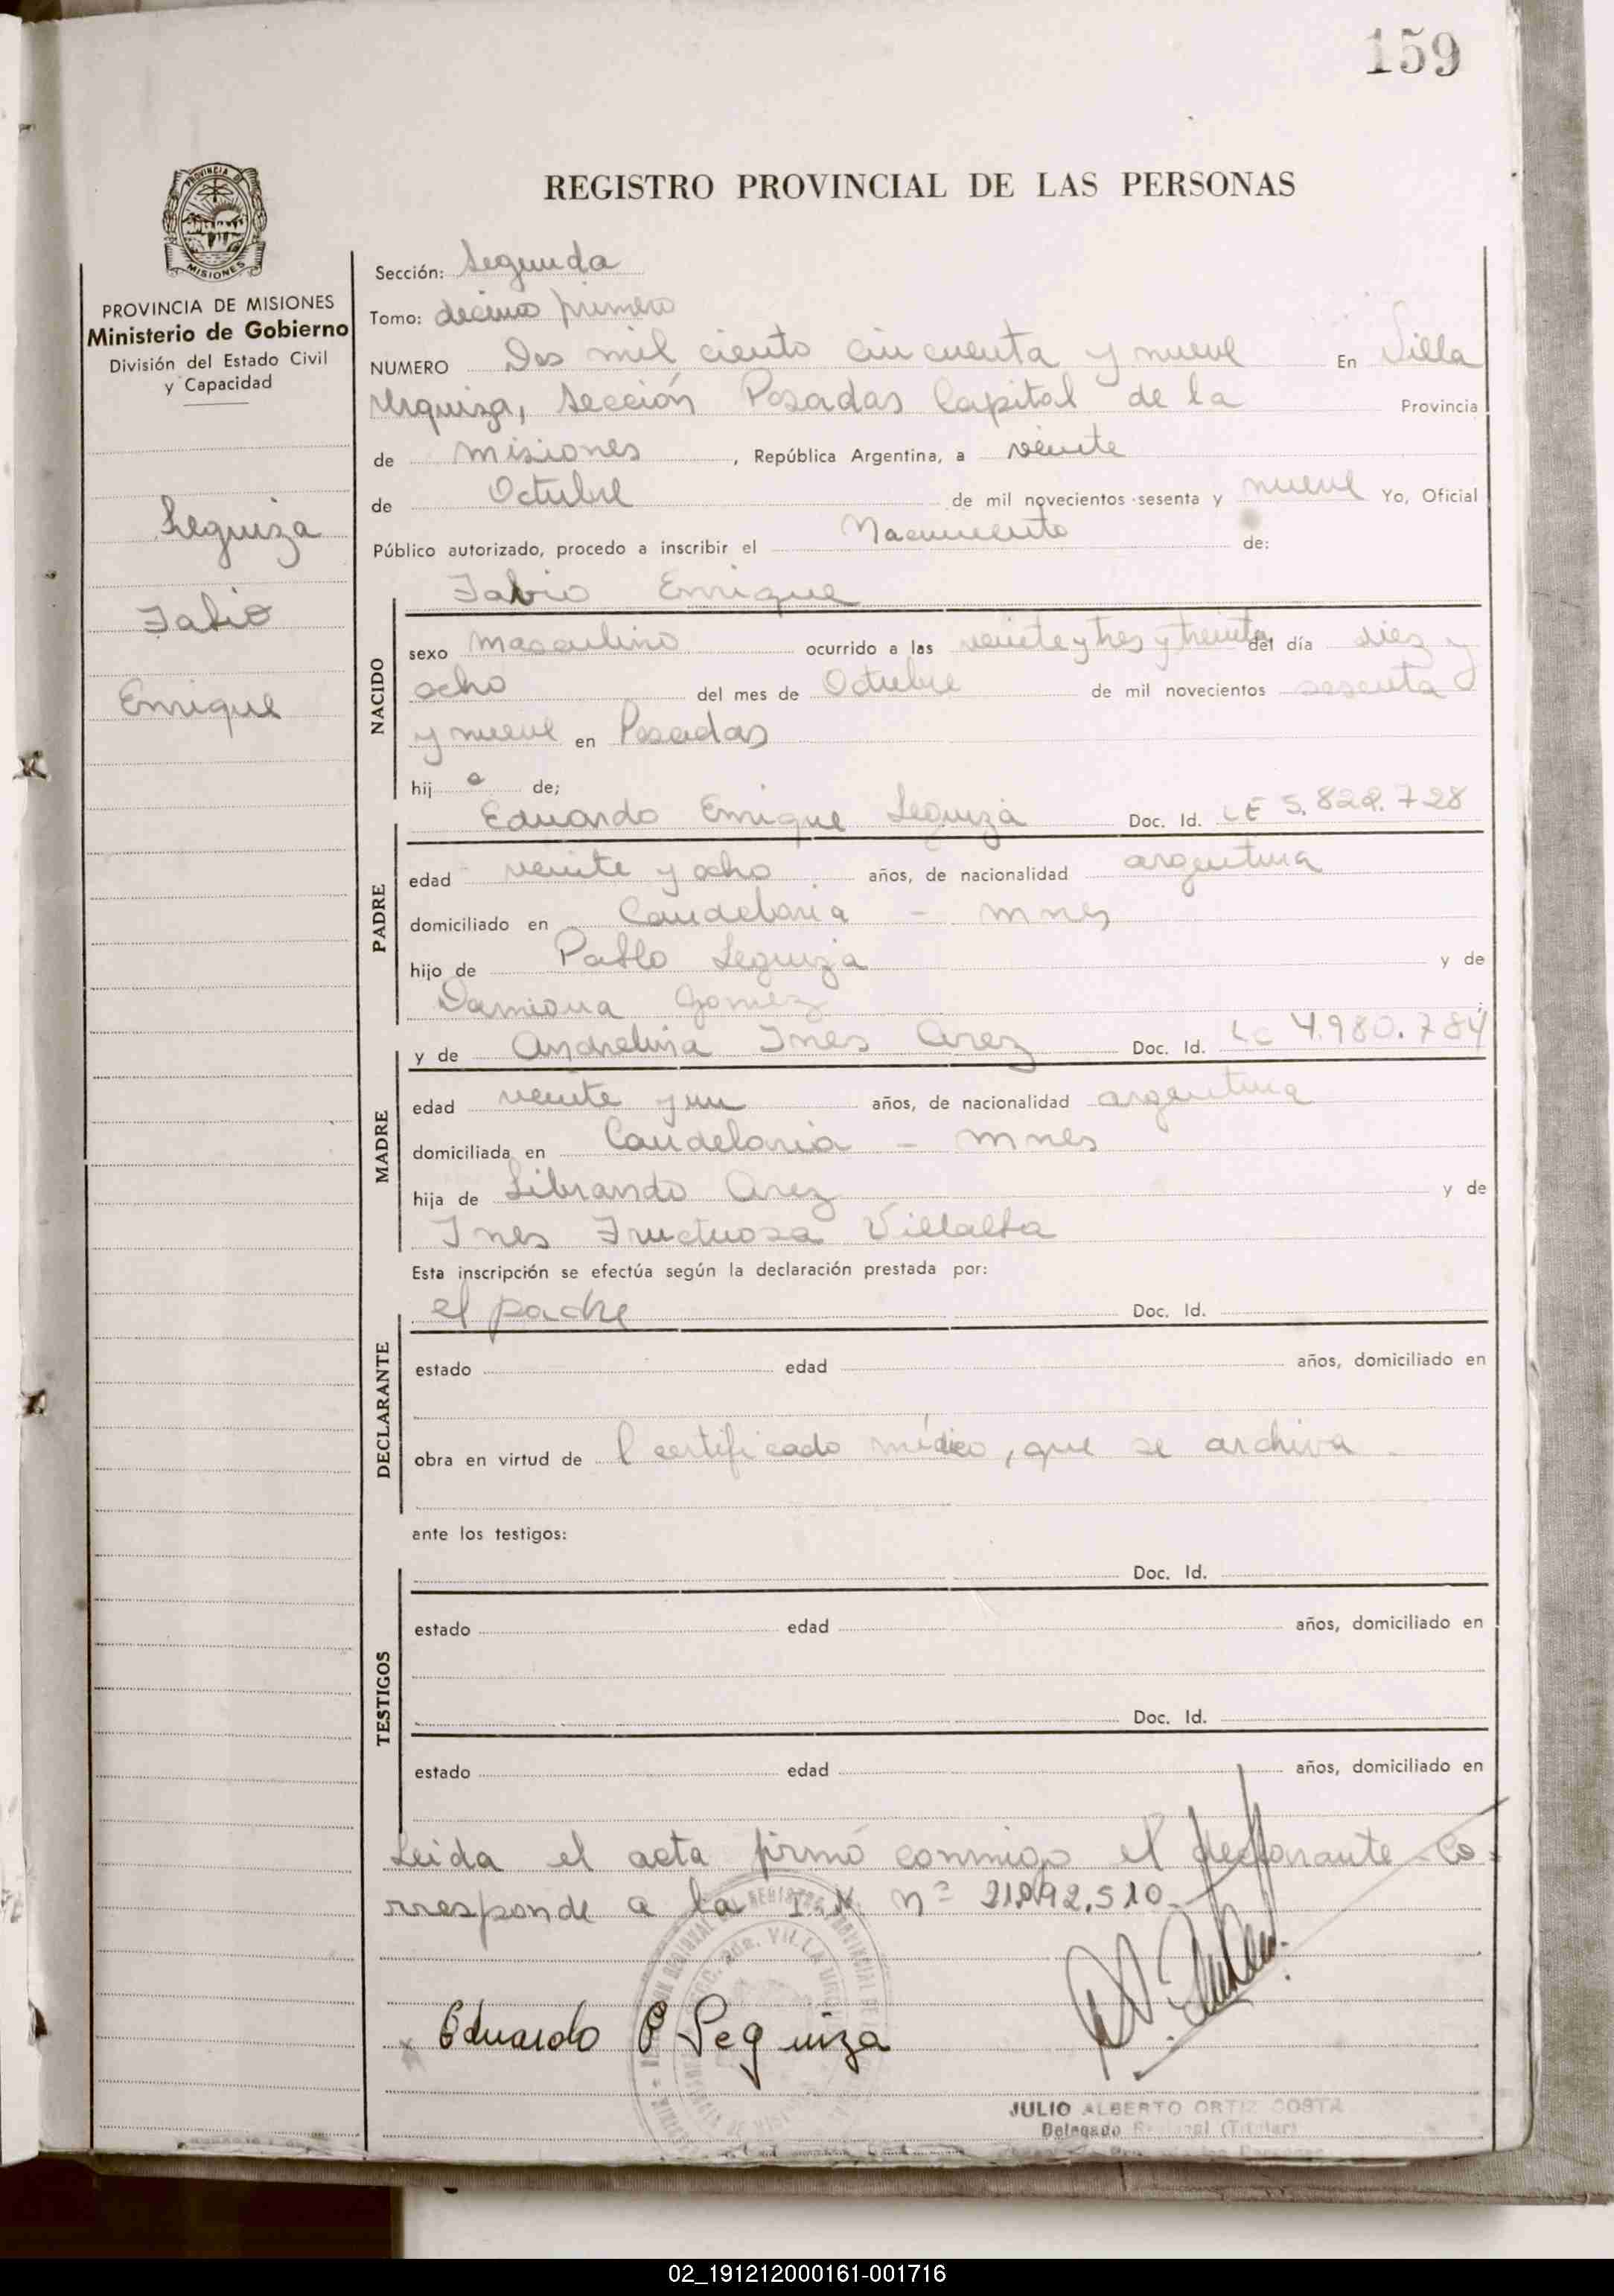 159
PROVINCIA DE
MISIONES
REGISTRO PROVINCIAL DE LAS PERSONAS
PROVINCIA DE MISIONES
Ministerio de Gobierno
División del Estado Civil
y Capacidad
Leguiza
Fabio
Enrique
Sección: Segunda
Tomo: décimo primero
NUMERO Dos mil ciento cincuenta y nueve En Villa
Urquiza, Sección Posadas Capital de la Provincia
de Misiones, República Argentina, a veinte
de Octubre de mil novecientos sesenta y nueve Yo, Oficial
Público autorizado, procedo a inscribir el Nacimiento de:
Fabio Enrique
NACIDO
sexo masculino ocurrido a las veinte y tres y treinta del día diez y
ocho del mes de Octubre de mil novecientos sesenta
y nueve en Posadas
hij o de;
Eduardo Enrique Leguiza Doc. Id. LE 5.828.728
PADRE
edad veinte y ocho años, de nacionalidad argentina
domiciliado en Candelaria - Mnes
hijo de Pablo Leguiza y de
Damiona Gomez
y de Andrelina Ines Arez Doc. Id. LC 4.980.784
MADRE
edad veinte y un años, de nacionalidad argentina
domiciliada en Candelaria - Mnes
hija de Librando Arez y de
Ines Fructuosa Villalba
Esta inscripción se efectúa según la declaración prestada por:
el padre Doc. Id.
DECLARANTE
estado edad años, domiciliado en
obra en virtud de l certificado médico, que se archiva.
ante los testigos:
Doc. Id.
TESTIGOS
estado edad años, domiciliado en
Doc. Id.
estado edad años, domiciliado en
Leida el acta firmó conmigo el declarante - Co-
rresponde a la I.N. nº 21.092.510
Eduardo E Leguiza
JULIO ALBERTO ORTIZ COSTA
Delegado Regional (Titular)
02_191212000161-001716